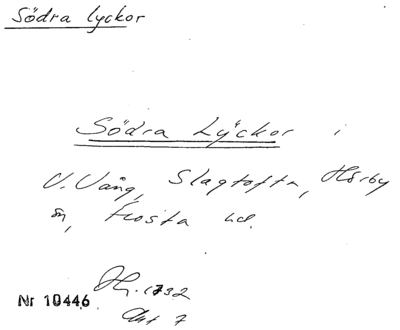 Södra lyckor
Södra Lyckor i
V. Vång, Slagtofta, Hörby
sn, Frosta hd.
1732
Nr 10446
Akt 7